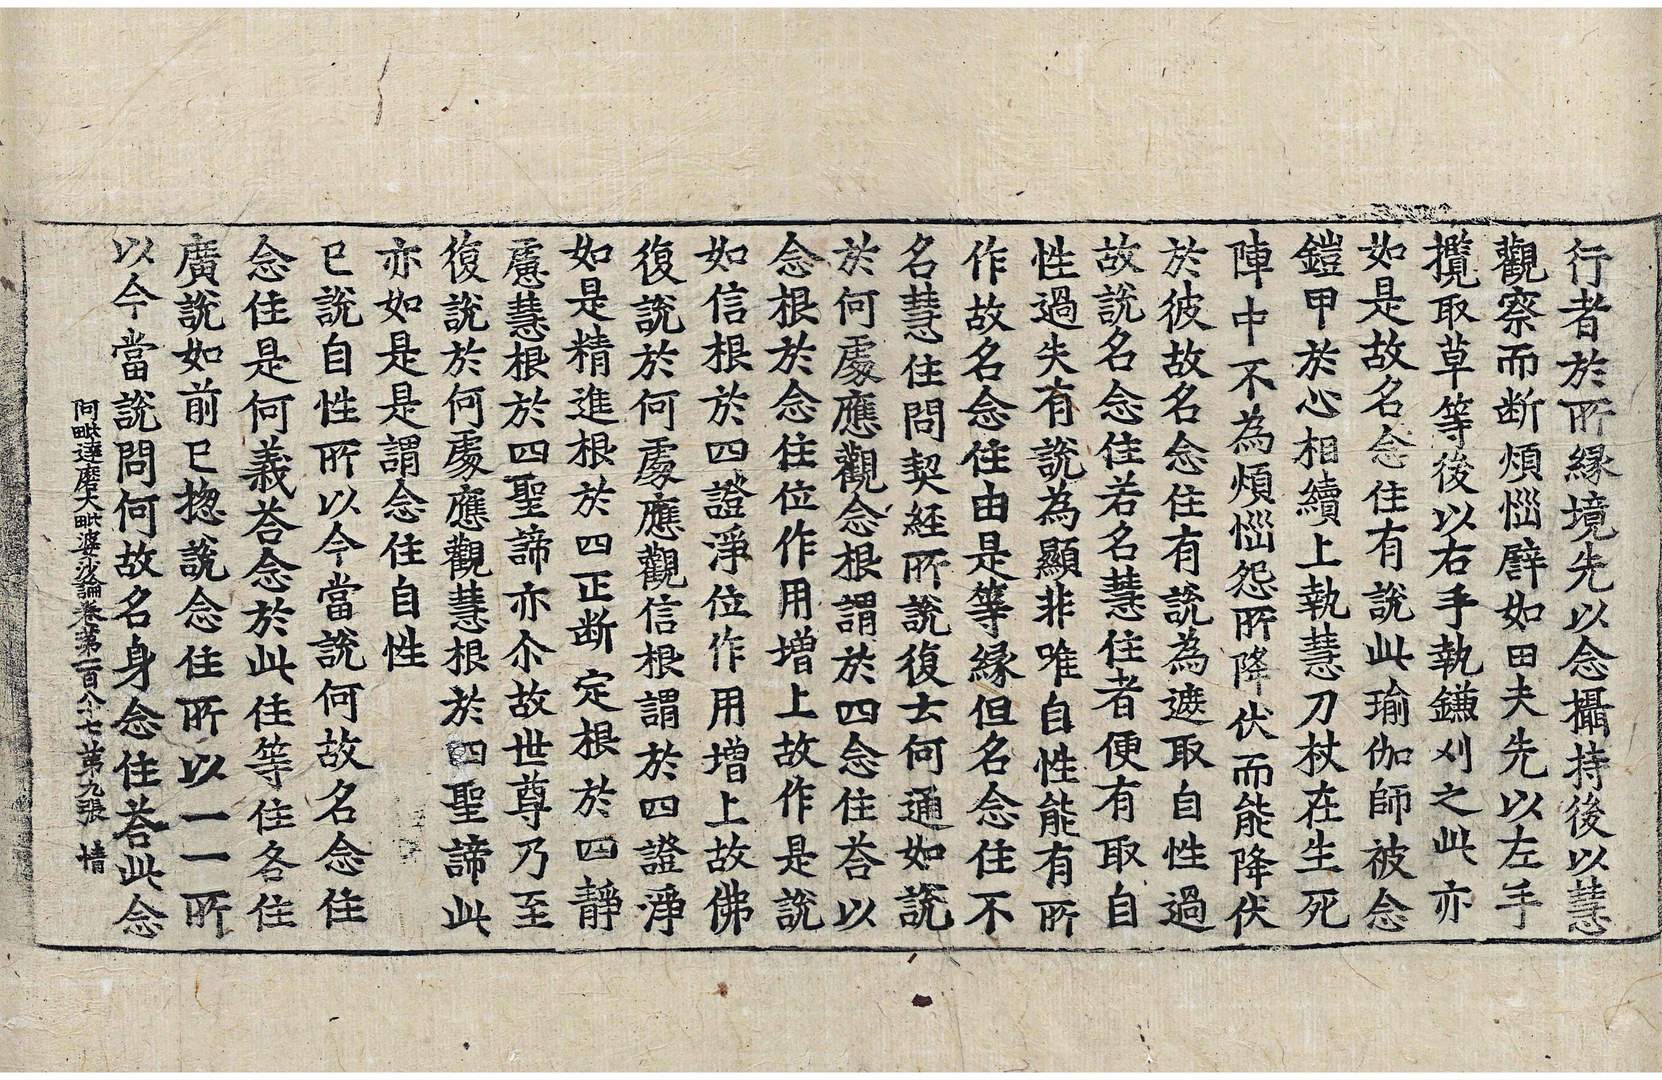 行者於所緣境先以念攝持後以慧
觀察而断煩惱譬如田夫先以左手
攬取草等後以右手執鎌刈之此亦
如是故名念住有說此瑜伽師被念
鎧甲於心相續上執慧刀杖在生死
陣中不為煩惱怨所降伏而能降伏
於彼故名念住有說為遮取自性過
故說名念住若名慧住者便有取自
性過失有說為顯非唯自性能有所
作故名念住由是等緣但名念住不
名慧住問契經所說復云何通如說
於何處應觀念根謂於四念住荅以
念根於念住位作用增上故作是說
如信根於四證淨位作用增上故佛
復說於何處應觀信根謂於四證淨
如是精進根於四正断定根於四靜
慮慧根於四聖諦亦尒故世尊乃至
復說於何處應觀慧根於四聖諦此
亦如是是謂念住自性
已說自性所以今當說何故名念住
念住是何義荅念於此住等住各住
廣說如前已揔說念住所以一一所
以今當說問何故名身念住荅此念
阿毗達磨大毗婆沙論卷第一百八十七第九張 情